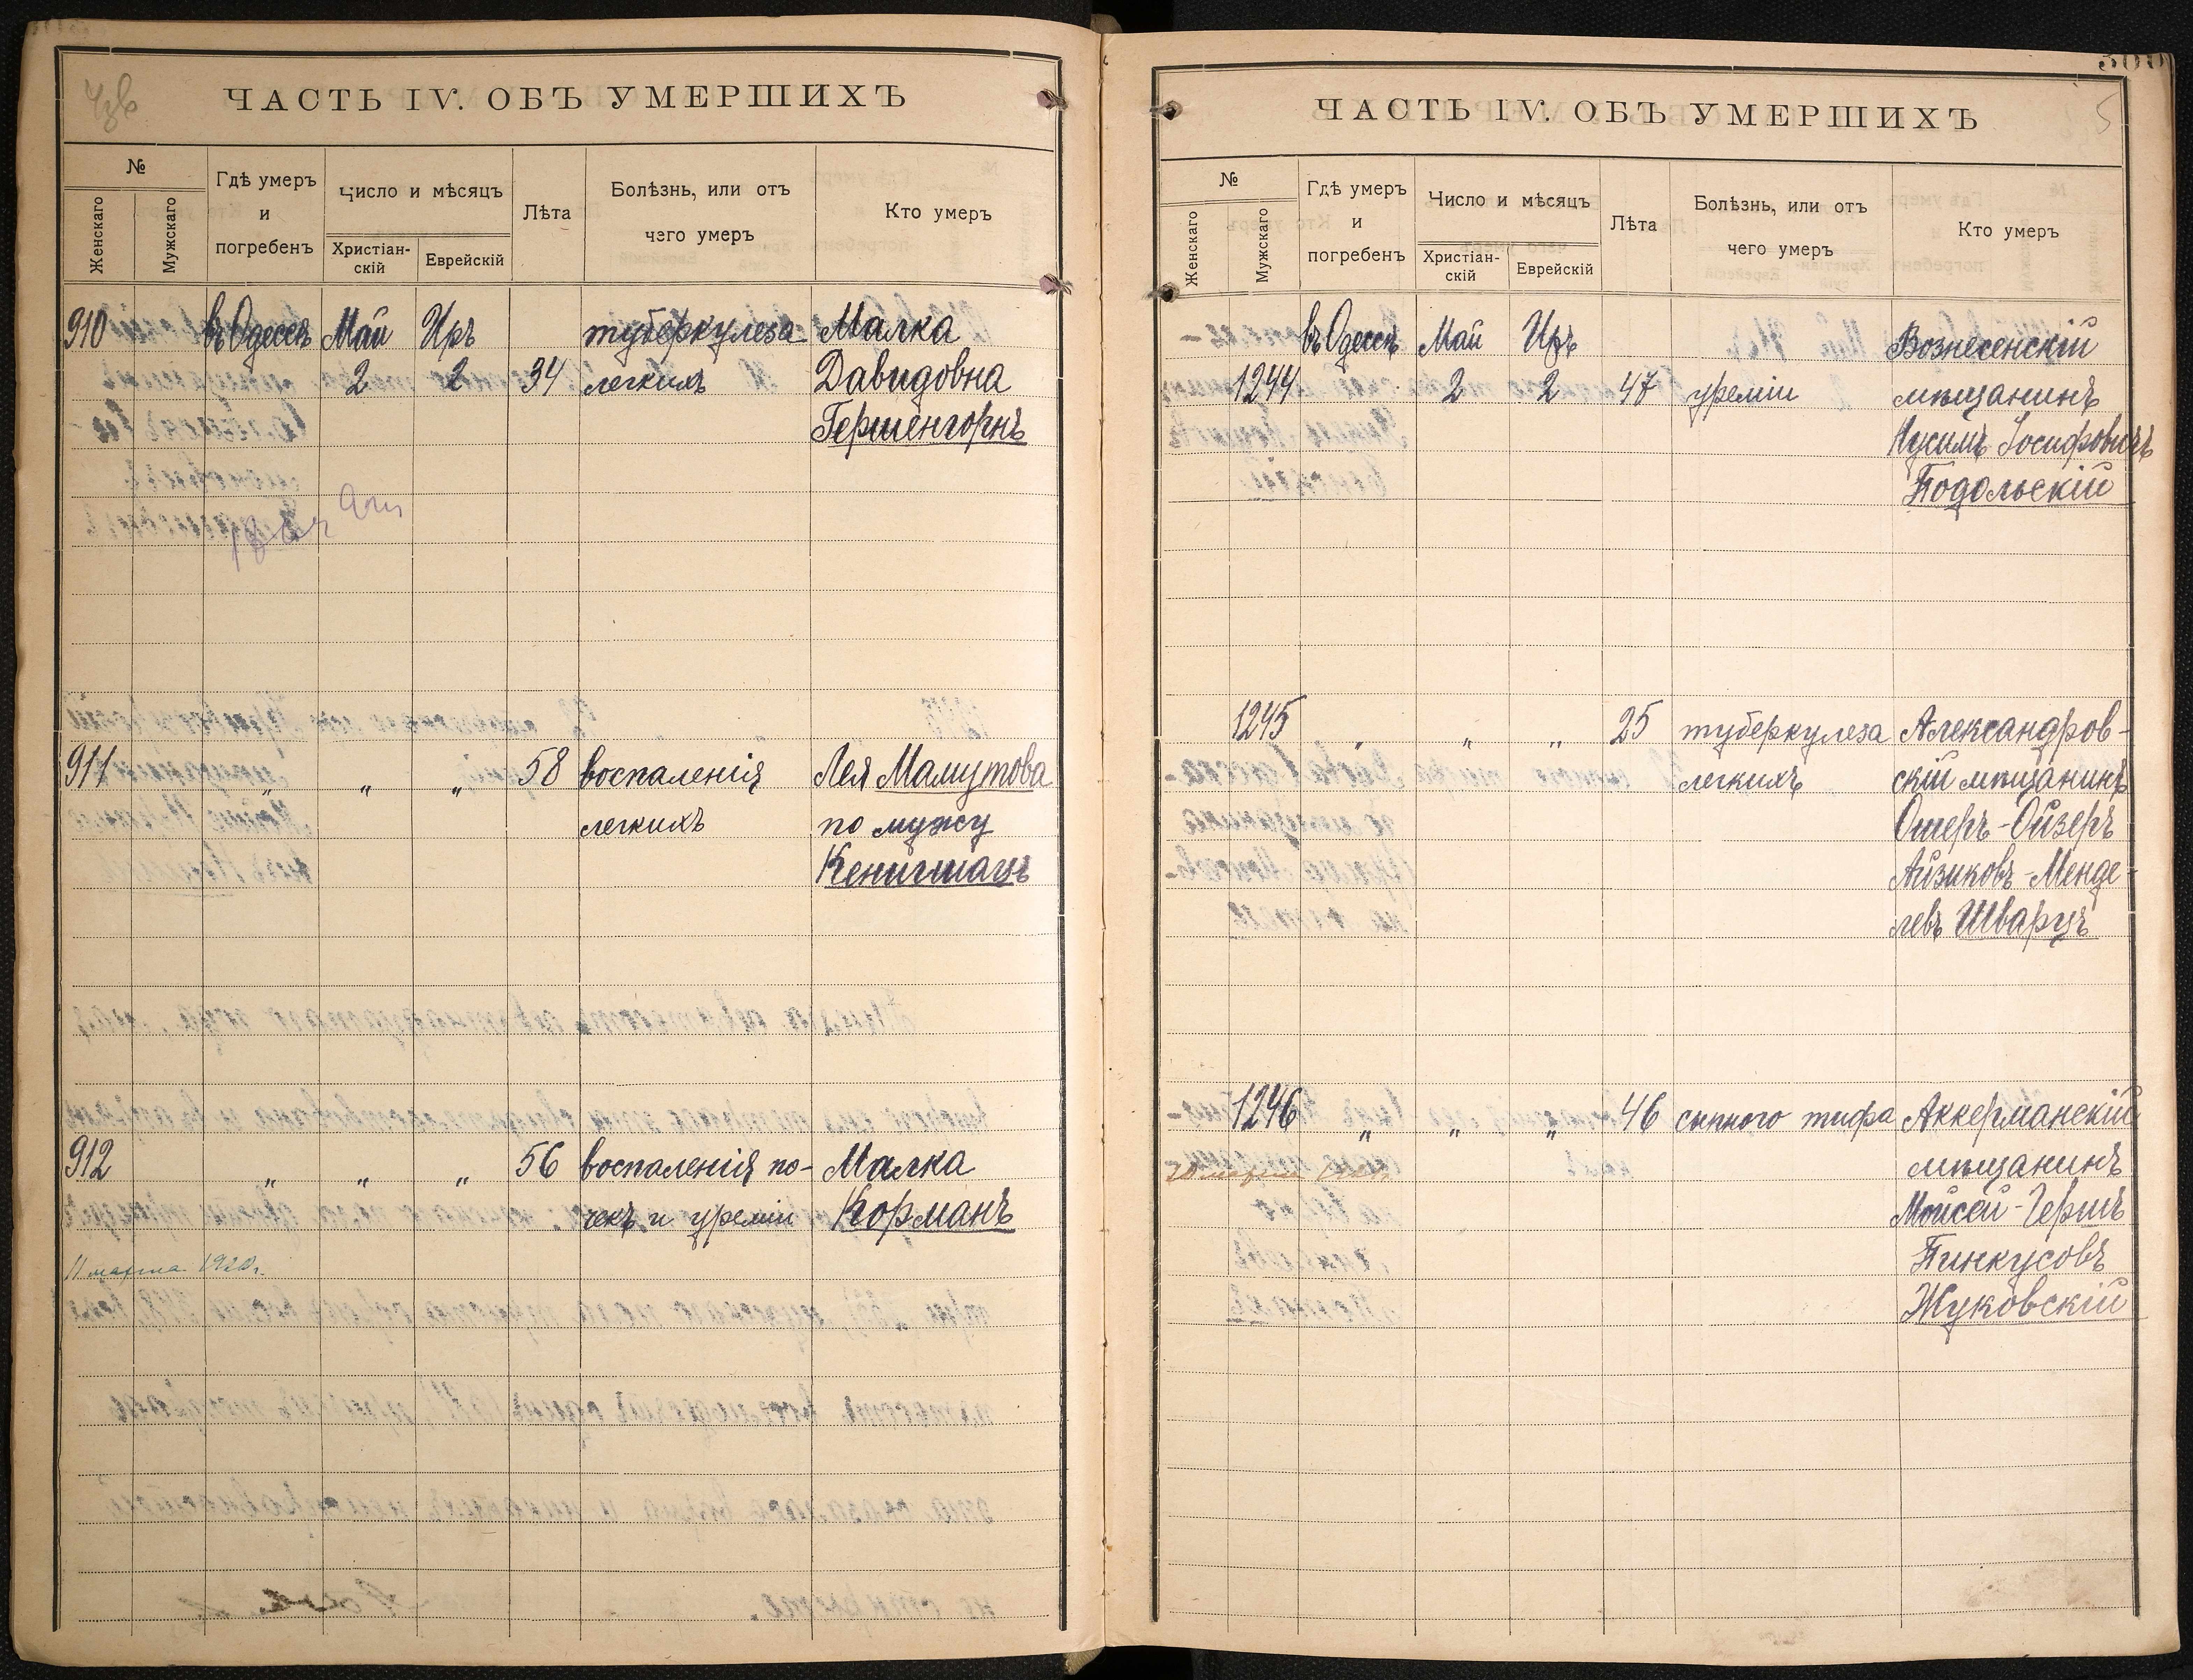 ЧАСТЬ IV. ОБЪ УМЕРШИХЪ
№
Женскаго
Мужскаго
Гдѣ умеръ
и
погребенъ
Число и мѣсяцъ
Христіан-
скій
Еврейскій
Лѣта
Болѣзнь, или отъ
чего умеръ
Кто умеръ
910 въ Одессѣ Май Иръ туберкулеза Малка
2 2 34 легкихъ Давидовна
Гершенгорнъ
911 „ „ „ 58 воспаленія Лея Мамутова
легкихъ по мужу
Кенигшацъ
912 „ „ „ 56 воспаленія по- Малка
чекъ и уреміи Корманъ
11 марта 1920г.
300
5
ЧАСТЬ IV. ОБЪ УМЕРШИХЪ
№
Женскаго
Мужскаго
Гдѣ умеръ
и
погребенъ
Число и мѣсяцъ
Христіан-
скій
Еврейскій
Лѣта
Болѣзнь, или отъ
чего умеръ
Кто умеръ
въ Одессѣ Май Иръ Вознесенскій
1244 2 2 47 уреміи мѣщанинъ
Нухимъ Іосифовичъ
Подольскій
1245 „ „ „ 25 туберкулеза Александров-
легкихъ скій мѣщанинъ
Ошеръ-Ойзеръ
Айзиковъ-Менде-
левъ Шварцъ
1246 „ „ „ 46 сыпного тифа Аккерманскій
20 марта мѣщанинъ
Мойсей-Гершъ
Пинкусовъ
Жуковскій